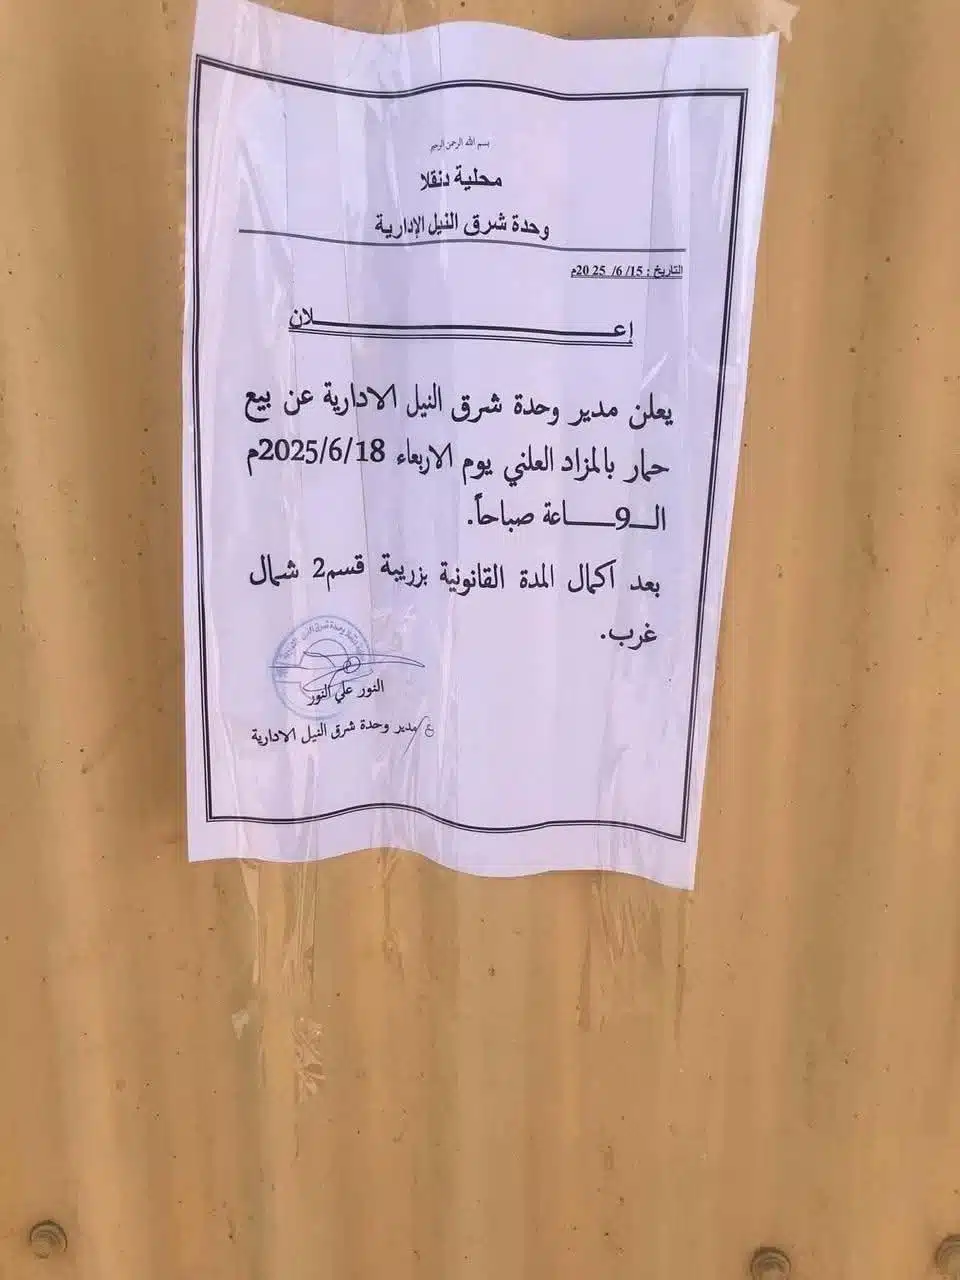 بسم الله الرحمن الرحيم
محلية دنقلا
وحدة شرق النيل الإدارية
التاريخ : 15/ 6/ 2025م
إعـــــــــــــــــــــــــــــلان
يعلن مدير وحدة شرق النيل الادارية عن بيع
حمار بالمزاد العلني يوم الاربعاء 2025/6/18م
الــ9ـــــاعة صباحاً.
بعد اكمال المدة القانونية بزريبة قسم2 شمال
غرب.
النور علي النور
ع/مدير وحدة شرق النيل الادارية